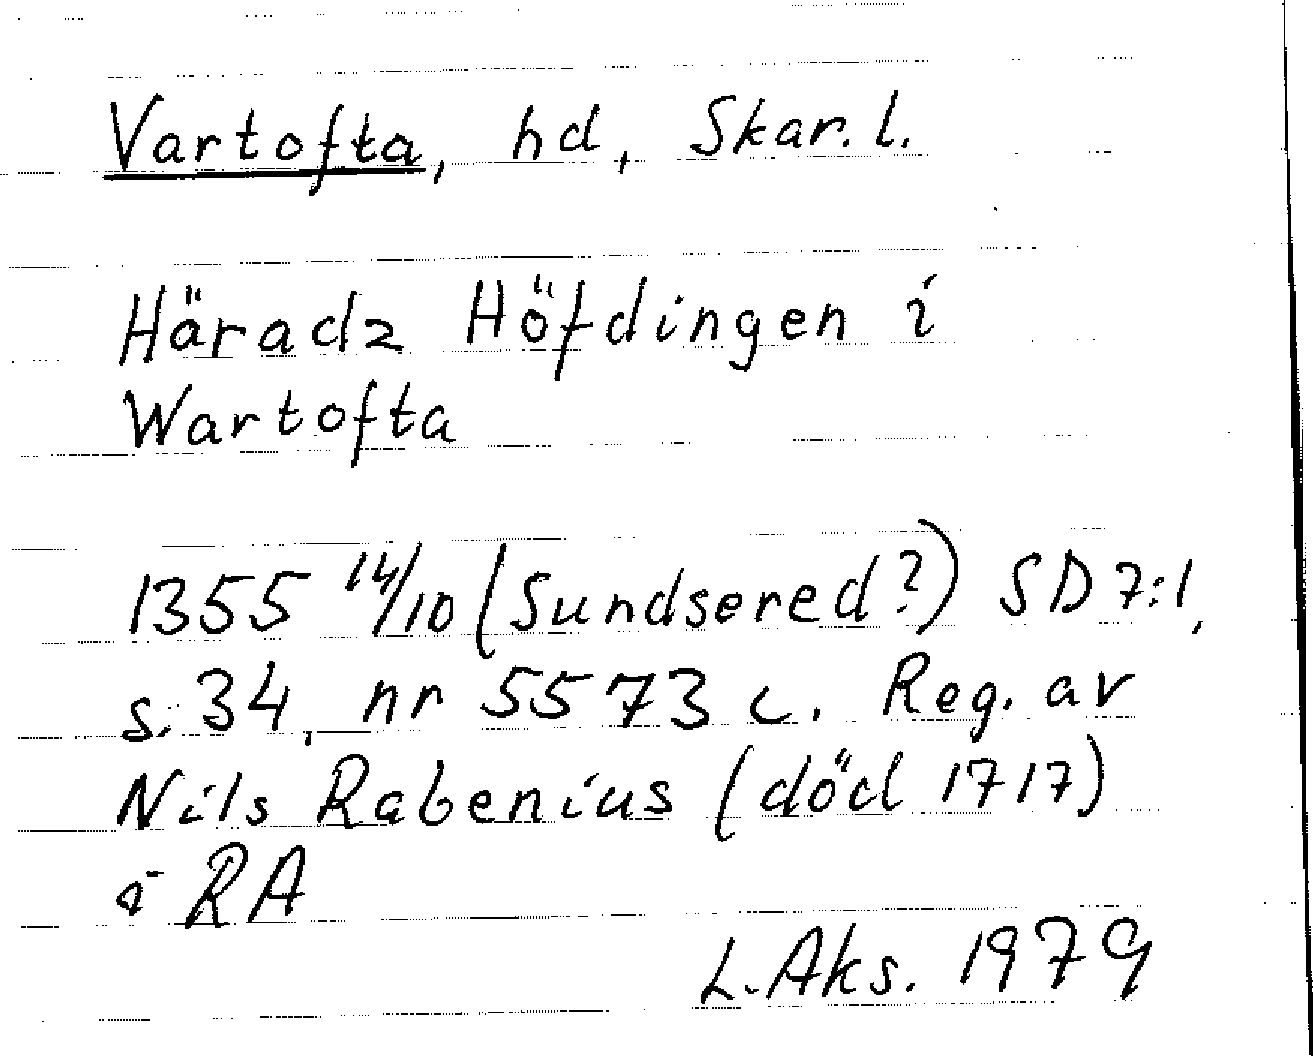 Vartofta, hd, Skar. l.
Häradz Höfdingen i
Wartofta
1355 14/10 (Sundsered?) SD 7:1,
s. 34, nr 5573 c. Reg. av
Nils Rabenius (död 1717)
i RA
L. Aks. 1979